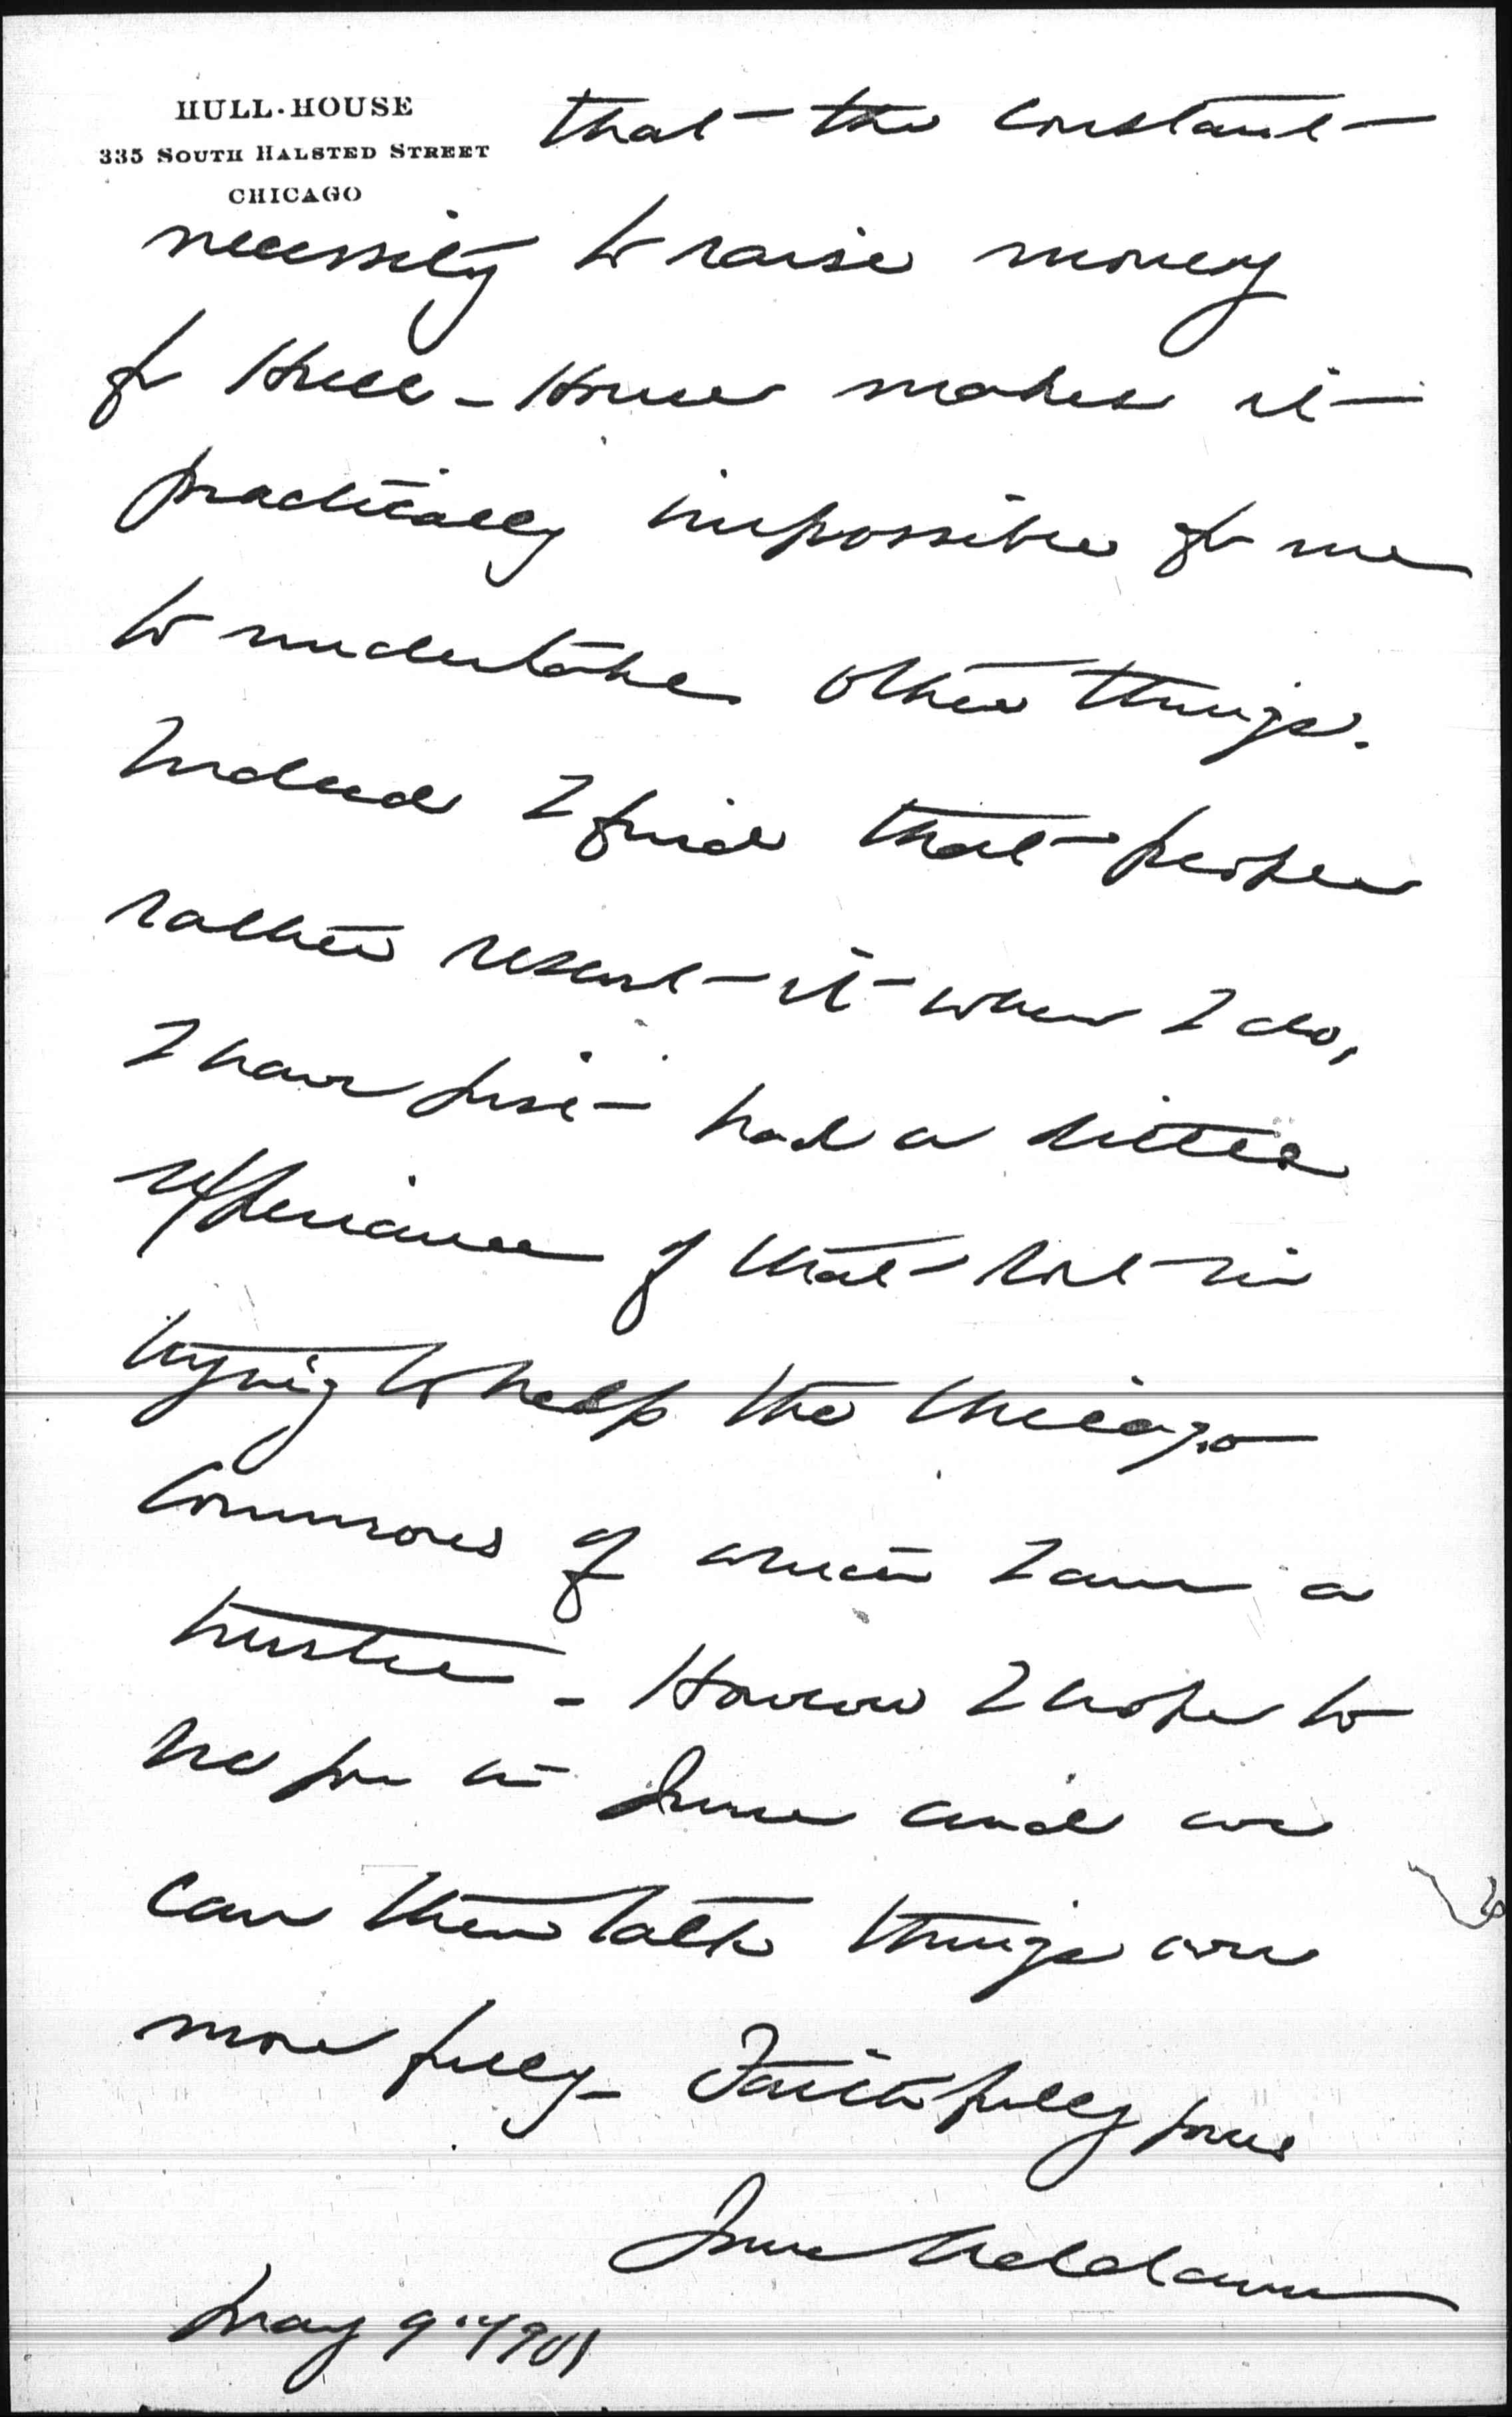 HULL-HOUSE
335 SOUTH HALSTED STREET
CHICAGO
that the constant
necessity to raise money
for Hull-House makes it
practically impossible for me
to undertake other things.
Indeed I find that people
rather resent it when I do,
I have just had a little
experience of that sort in
trying to help the Chicago
Commons of which I am a
trustee - However I hope to
see you in June and we
can then talk things over
more fully - Faithfully yours
Jane Addams
May 9" 1901